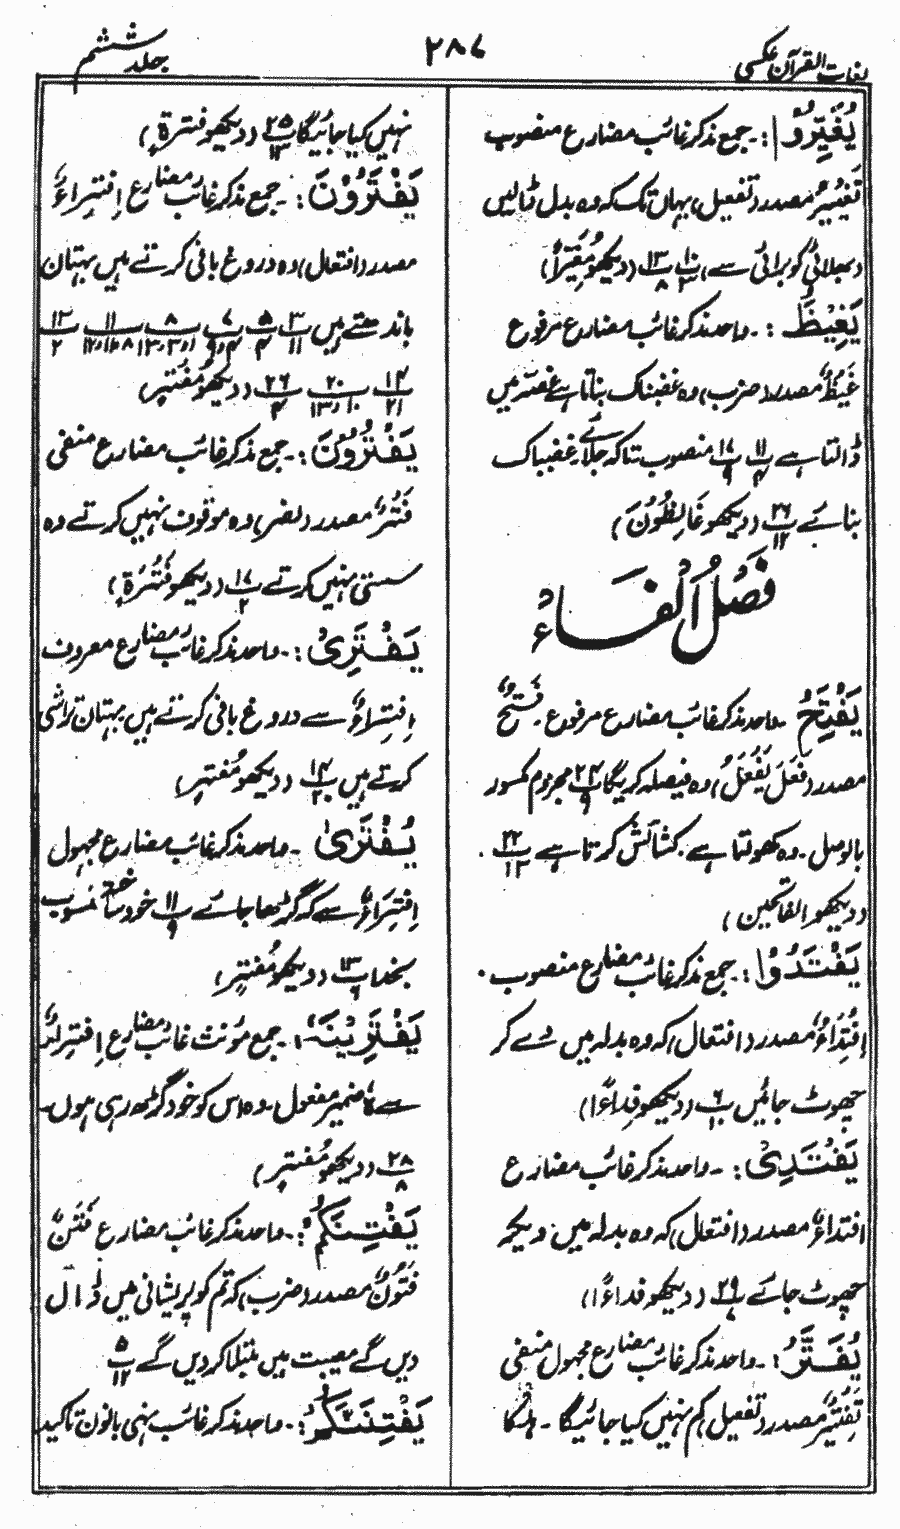 لغات القرآن عکسی
۲۸۷
جلد ششم
یُغَیِّرُوْا :۔ جمع مذکر غائب مضارع منصوب
تَغْیِیْرٌ مصدر (تفعیل) یہاں تک کہ وہ بدل ڈالیں
(بھلائی کو برائی سے) ۱۰/۳ ۱۳/۸ (دیکھو مُغَیِّرًا)
یَغِیْظُ :۔ واحد مذکر غائب مضارع مرفوع
غَیْظٌ مصدر (ضرب) وہ غضبناک بناتا ہے غصہ میں
ڈالتا ہے ۱۱/۴ ۱۷/۹ منصوب تاکہ جلائے غضبناک
بنائے ۲۶/۱۲ (دیکھو غَائِظُوْنَ)
فَصْلُ الْفَاءِ
یَفْتَحُ ۔ واحد مذکر غائب مضارع مرفوع ۔ فَتْحٌ
مصدر (فَعَلَ یَفْعَلُ) وہ فیصلہ کریگا ۲۴/۹ مجزوم مکسور
بالوصل ۔ وہ کھولتا ہے ۔ کشائش کرتا ہے ۲۲/۱۳ ۔
(دیکھو الفاتحین)
یَفْتَدُوْا :۔ جمع مذکر غائب مضارع منصوب ۔
اِفْتِدَاءٌ مصدر (افتعال) کہ وہ بدلہ میں دے کر
چھوٹ جائیں ۶/۱۰ (دیکھو فِدَاءً)
یَفْتَدِیْ :۔ واحد مذکر غائب مضارع
افتداءٌ مصدر (افتعال) کہ وہ بدلہ میں دیکر
چھوٹ جائے ۲۹/۷ (دیکھو فداءً)
یُفَتَّرُ :۔ واحد مذکر غائب مضارع مجہول منفی
تَفْتِیْرٌ مصدر (تفعیل) کم نہیں کیا جائیگا ۔ ہلکا
نہیں کیا جائیگا ۲۵/۱۳ (دیکھو فَتْرَۃٍ)
یَفْتَرُوْنَ :۔ جمع مذکر غائب مضارع اِفْتِرَاءٌ
مصدر (افتعال) وہ دروغ بافی کرتے ہیں بہتان
باندھتے ہیں ۳/۱۱ ۵/۴ ۷/۴ و ۹ ۸/۱ و ۳ و ۱۳ ۱۱/۸ و ۱۲ و ۱۲ ۱۲/۲
۱۴/۲۱ ۲۰/۱۰ و ۱۳ ۲۶/۴ (دیکھو مُفْتَرٍ)
یَفْتُرُوْنَ :۔ جمع مذکر غائب مضارع منفی
فَتْرٌ مصدر (نصر) وہ موقوف نہیں کرتے وہ
سستی نہیں کرتے ۱۷/۲ (دیکھو فَتْرَۃٍ)
یَفْتَرِیْ :۔ واحد مذکر غائب مضارع معروف
اِفْتِرَاءٌ سے دروغ بافی کرتے ہیں بہتان تراشی
کرتے ہیں ۱۴/۲۰ (دیکھو مُفْتَرٍ)
یُفْتَرٰی ۔ واحد مذکر غائب مضارع مجہول
اِفْتِرَاءٌ سے کہ گڑھا جائے ۱۱/۹ خود ساختہ منسوب
بخدا ۱۳/۶ (دیکھو مُفْتَرٍ)
یَفْتَرِیْنَہٗ :۔ جمع مؤنث غائب مضارع اِفْتِرَاءٌ
سے ہٗ ضمیر مفعول ۔ وہ اس کو خود گڑھ رہی ہوں ۔
۲۸/۸ (دیکھو مُفْتَرٍ)
یَفْتِنَکُمُ :۔ واحد مذکر غائب مضارع فَتْنٌ
فُتُوْنٌ مصدر (ضرب) کہ تم کو پریشانی میں ڈال
دیں گے مصیبت میں مبتلا کر دیں گے ۵/۱۲
یَفْتِنَنَّکُمُ :۔ واحد مذکر غائب نہی بانون تاکید